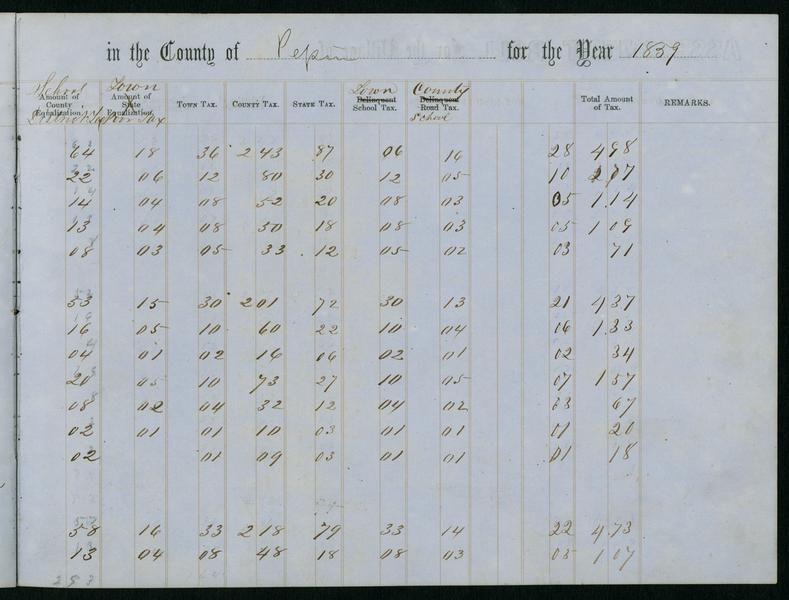 in the County of Pepin for the Year 1859
School Town Town County
Amount of County Equalization. Amount of State Equalization. TOWN TAX. COUNTY TAX. STATE TAX. Delinquent School Tax. Delinquent Road Tax. Total Amount of Tax. REMARKS.
District Tax Poor Tax School
64 18 36 2 43 87 06 16 28 4 98
22 06 12 80 30 12 05 10 77
14 04 08 52 20 08 03 05 1 14
13 04 08 50 18 08 03 05 1 09
08 03 05 33 12 05 02 03 71
53 15 30 2 01 72 30 13 21 4 37
16 05 10 60 22 10 04 06 1 33
04 01 02 16 06 02 01 02 34
20 05 10 73 27 10 05 07 1 57
08 02 04 32 12 04 02 03 67
02 01 01 10 03 01 01 01 20
02 01 09 03 01 01 01 18
58 16 33 2 18 79 33 14 22 4 73
13 04 08 48 18 08 03 05 1 07